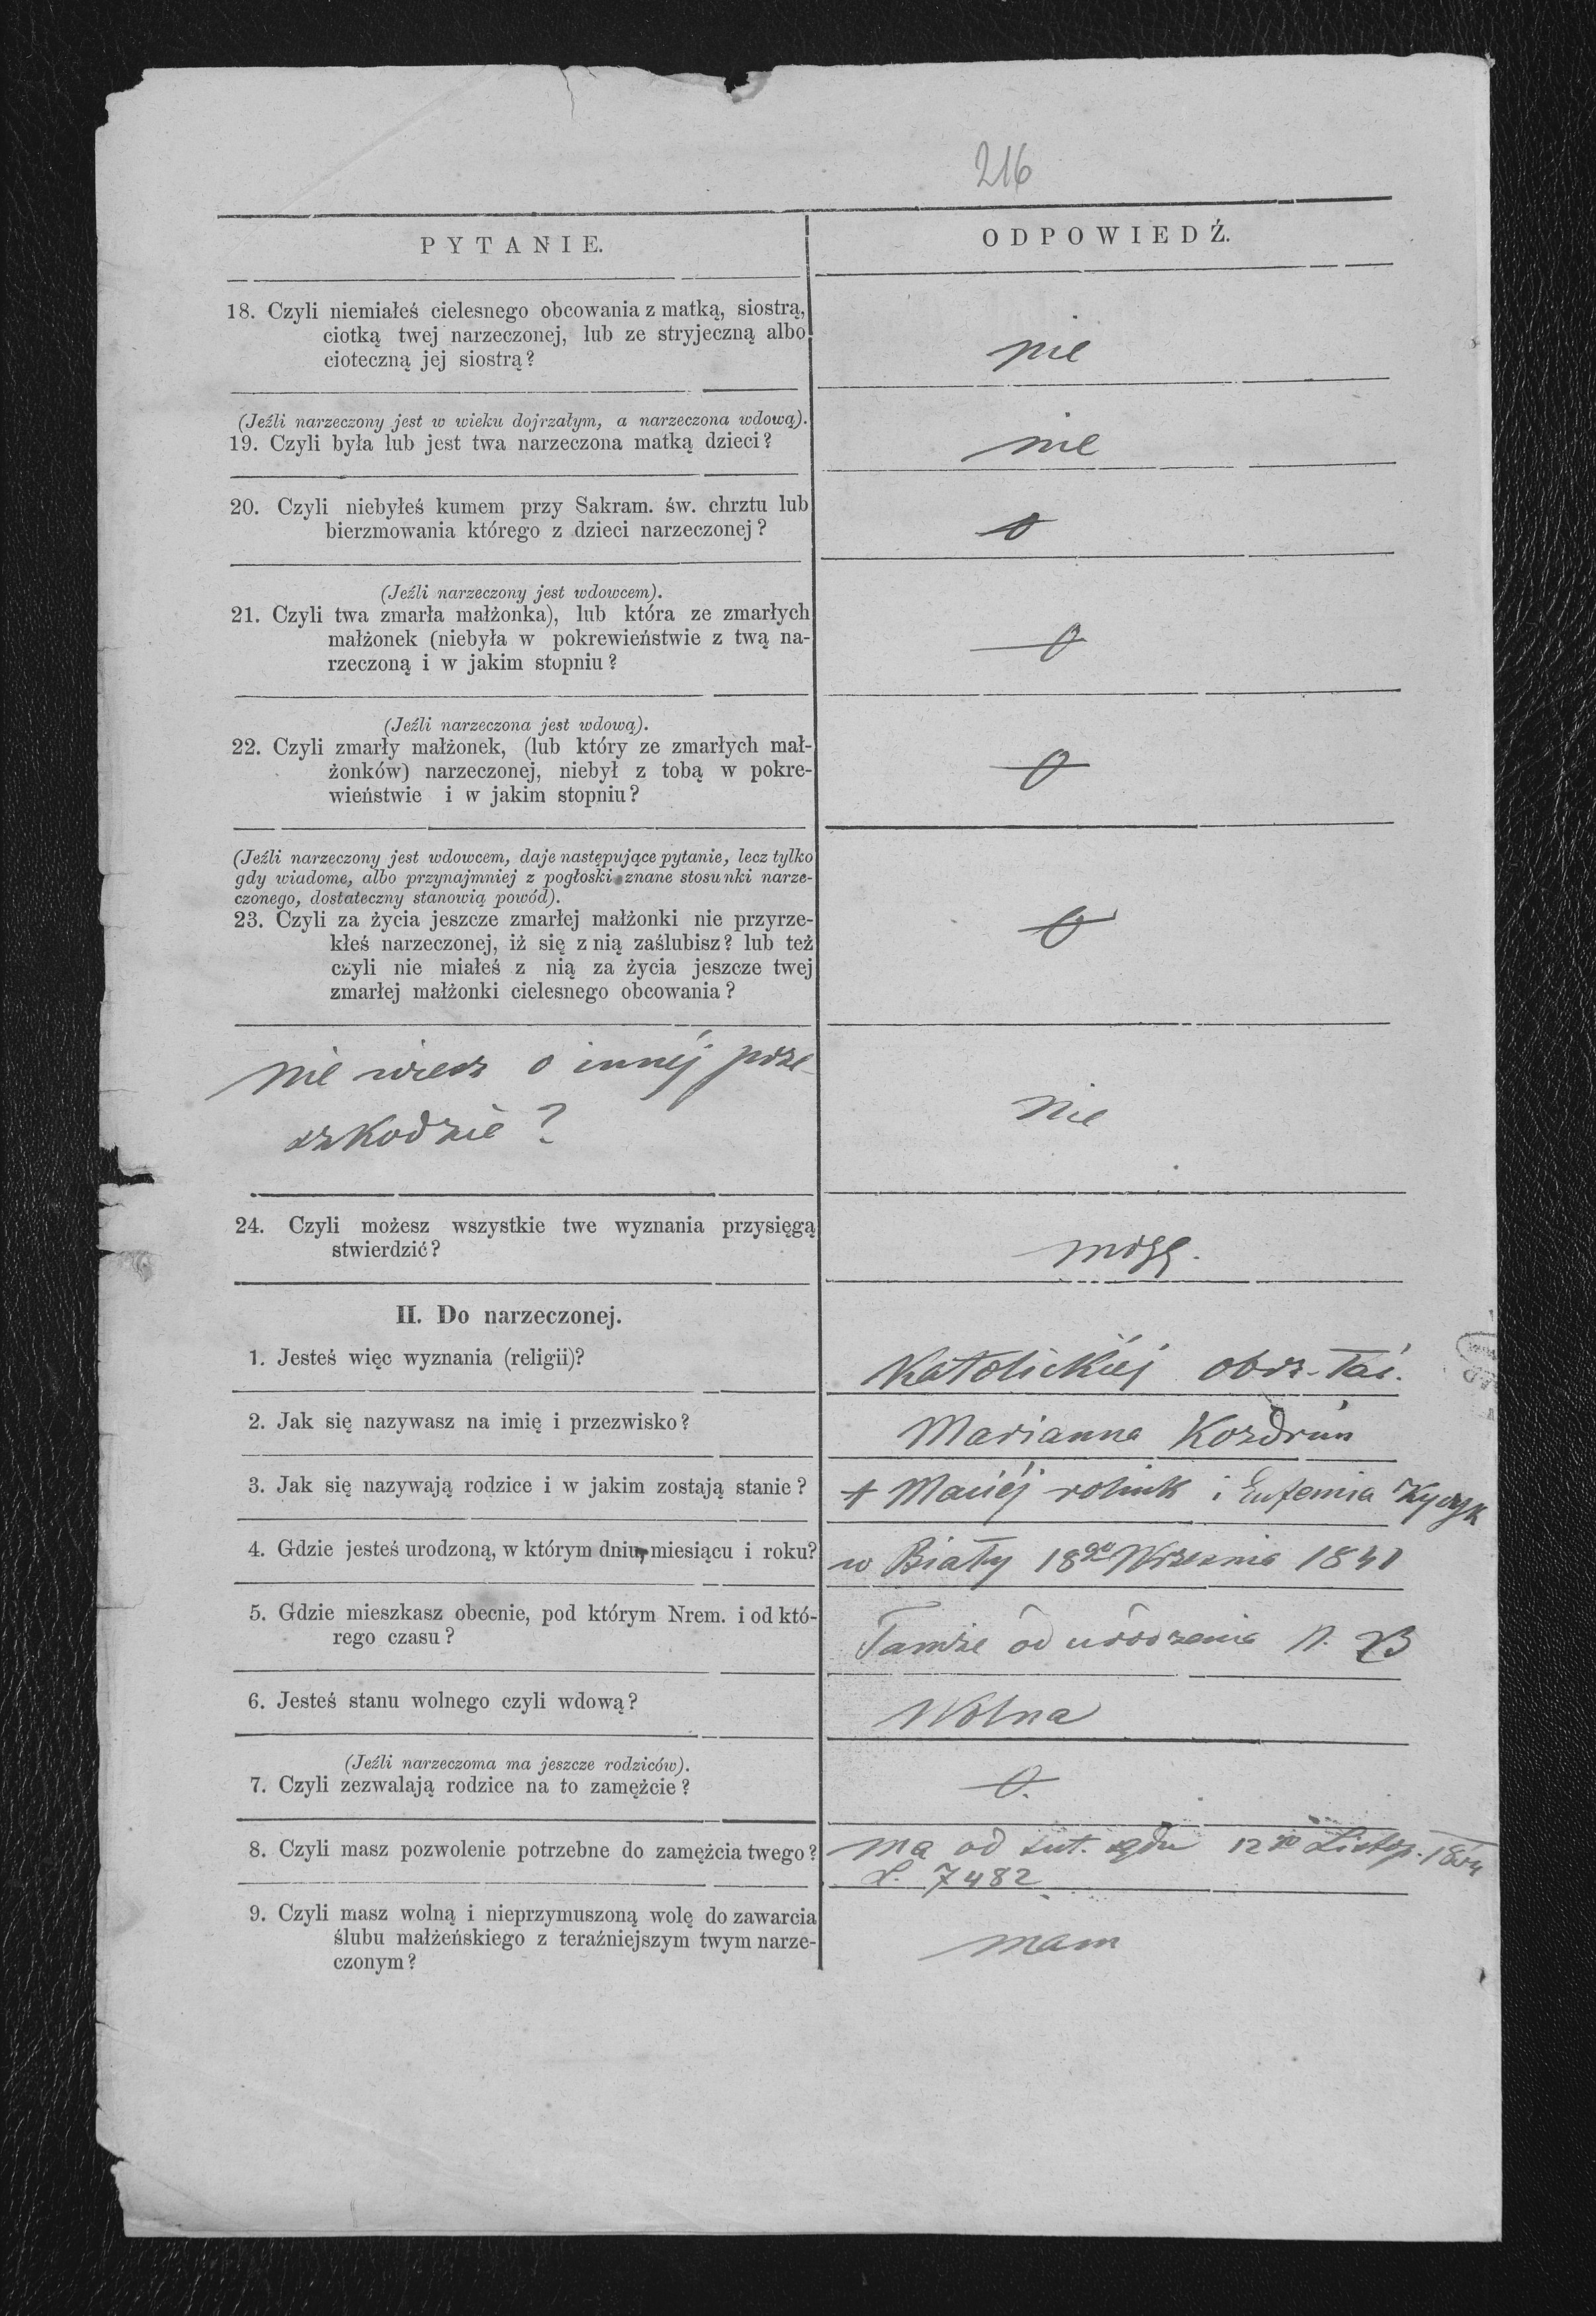 216
PYTANIE.
ODPOWIEDŹ.
18. Czyli niemiałeś cielesnego obcowania z matką, siostrą,
ciotką twej narzeczonej, lub ze stryjeczną albo
cioteczną jej siostrą?
nie
(Jeźli narzeczony jest w wieku dojrzałym, a narzeczona wdową).
19. Czyli była lub jest twa narzeczona matką dzieci?
nie
20. Czyli niebyłeś kumem przy Sakram. św. chrztu lub
bierzmowania którego z dzieci narzeczonej?
0
(Jeźli narzeczony jest wdowcem).
21. Czyli twa zmarła małżonka), lub która ze zmarłych
małżonek (niebyła w pokrewieństwie z twą na-
rzeczoną i w jakim stopniu?
0
(Jeźli narzeczona jest wdową).
22. Czyli zmarły małżonek, (lub który ze zmarłych mał-
żonków) narzeczonej, niebył z tobą w pokre-
wieństwie i w jakim stopniu?
0
(Jeźli narzeczony jest wdowcem, daje następujące pytanie, lecz tylko
gdy wiadome, albo przynajmniej z pogłoski znane stosunki narze-
czonego, dostateczny stanowią powód).
23. Czyli za życia jeszcze zmarłej małżonki nie przyrze-
kłeś narzeczonej, iż się z nią zaślubisz? lub też
czyli nie miałeś z nią za życia jeszcze twej
zmarłej małżonki cielesnego obcowania?
0
nie wiesz o innej prze-
szkodzie?
nie
24. Czyli możesz wszystkie twe wyznania przysięgą
stwierdzić?
mogę.
II. Do narzeczonej.
1. Jesteś więc wyznania (religii)?
Katolickiej obrz. łać.
2. Jak się nazywasz na imię i przezwisko?
Marianna Kozdruń
3. Jak się nazywają rodzice i w jakim zostają stanie?
+ Maciej rolnik i Eufemia
4. Gdzie jesteś urodzoną, w którym dniu, miesiącu i roku?
w Biały 18go Września 1841
5. Gdzie mieszkasz obecnie, pod którym Nrem. i od któ-
rego czasu?
Tamże od urodzenia N.
6. Jesteś stanu wolnego czyli wdową?
Wolna
(Jeźli narzeczoma ma jeszcze rodziców).
7. Czyli zezwalają rodzice na to zamężcie?
0.
8. Czyli masz pozwolenie potrzebne do zamężcia twego?
ma od tut. sądu 12go Listop.
L. 7482
9. Czyli masz wolną i nieprzymuszoną wolę do zawarcia
ślubu małżeńskiego z teraźniejszym twym narze-
czonym?
mam